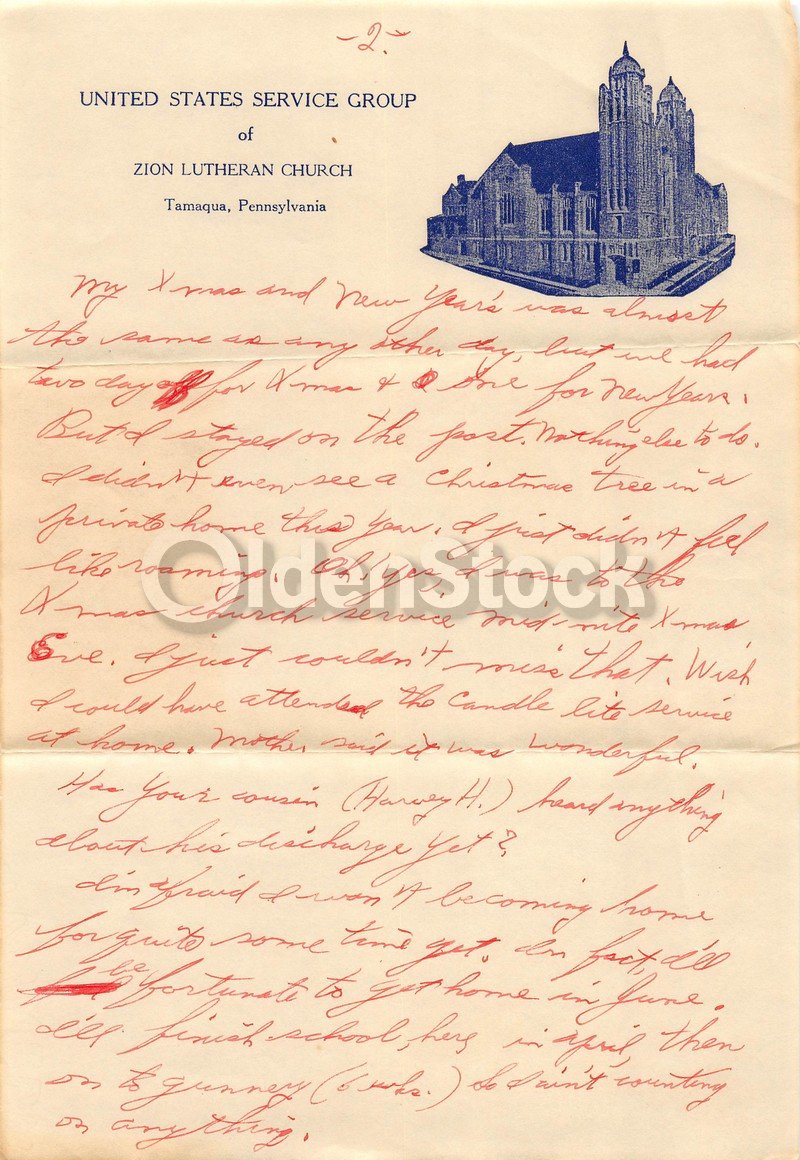 -2-
UNITED STATES SERVICE GROUP
of
ZION LUTHERAN CHURCH
Tamaqua, Pennsylvania
My Xmas and New Year's was almost
the same as any other day, but we had
two days off for Xmas & one for New Years.
But I stayed on the post. Nothing else to do.
I didn't even see a Christmas tree in a
private home this year. I just didn't feel
like roaming. Oh, yes, I was to the
Xmas church service mid-nite Xmas
Eve. I just couldn't miss that. Wish
I could have attended the candle lite service
at home. Mother said it was wonderful.
Has your cousin (Harvey H.) heard anything
about his discharge yet?
I'm afraid I won't be coming home
for quite some time yet. In fact, I'll
be fortunate to get home in June.
I'll finish school, here, in April, then
on to gunnery (6 wks.) So I ain't counting
on anything.
OldenStock